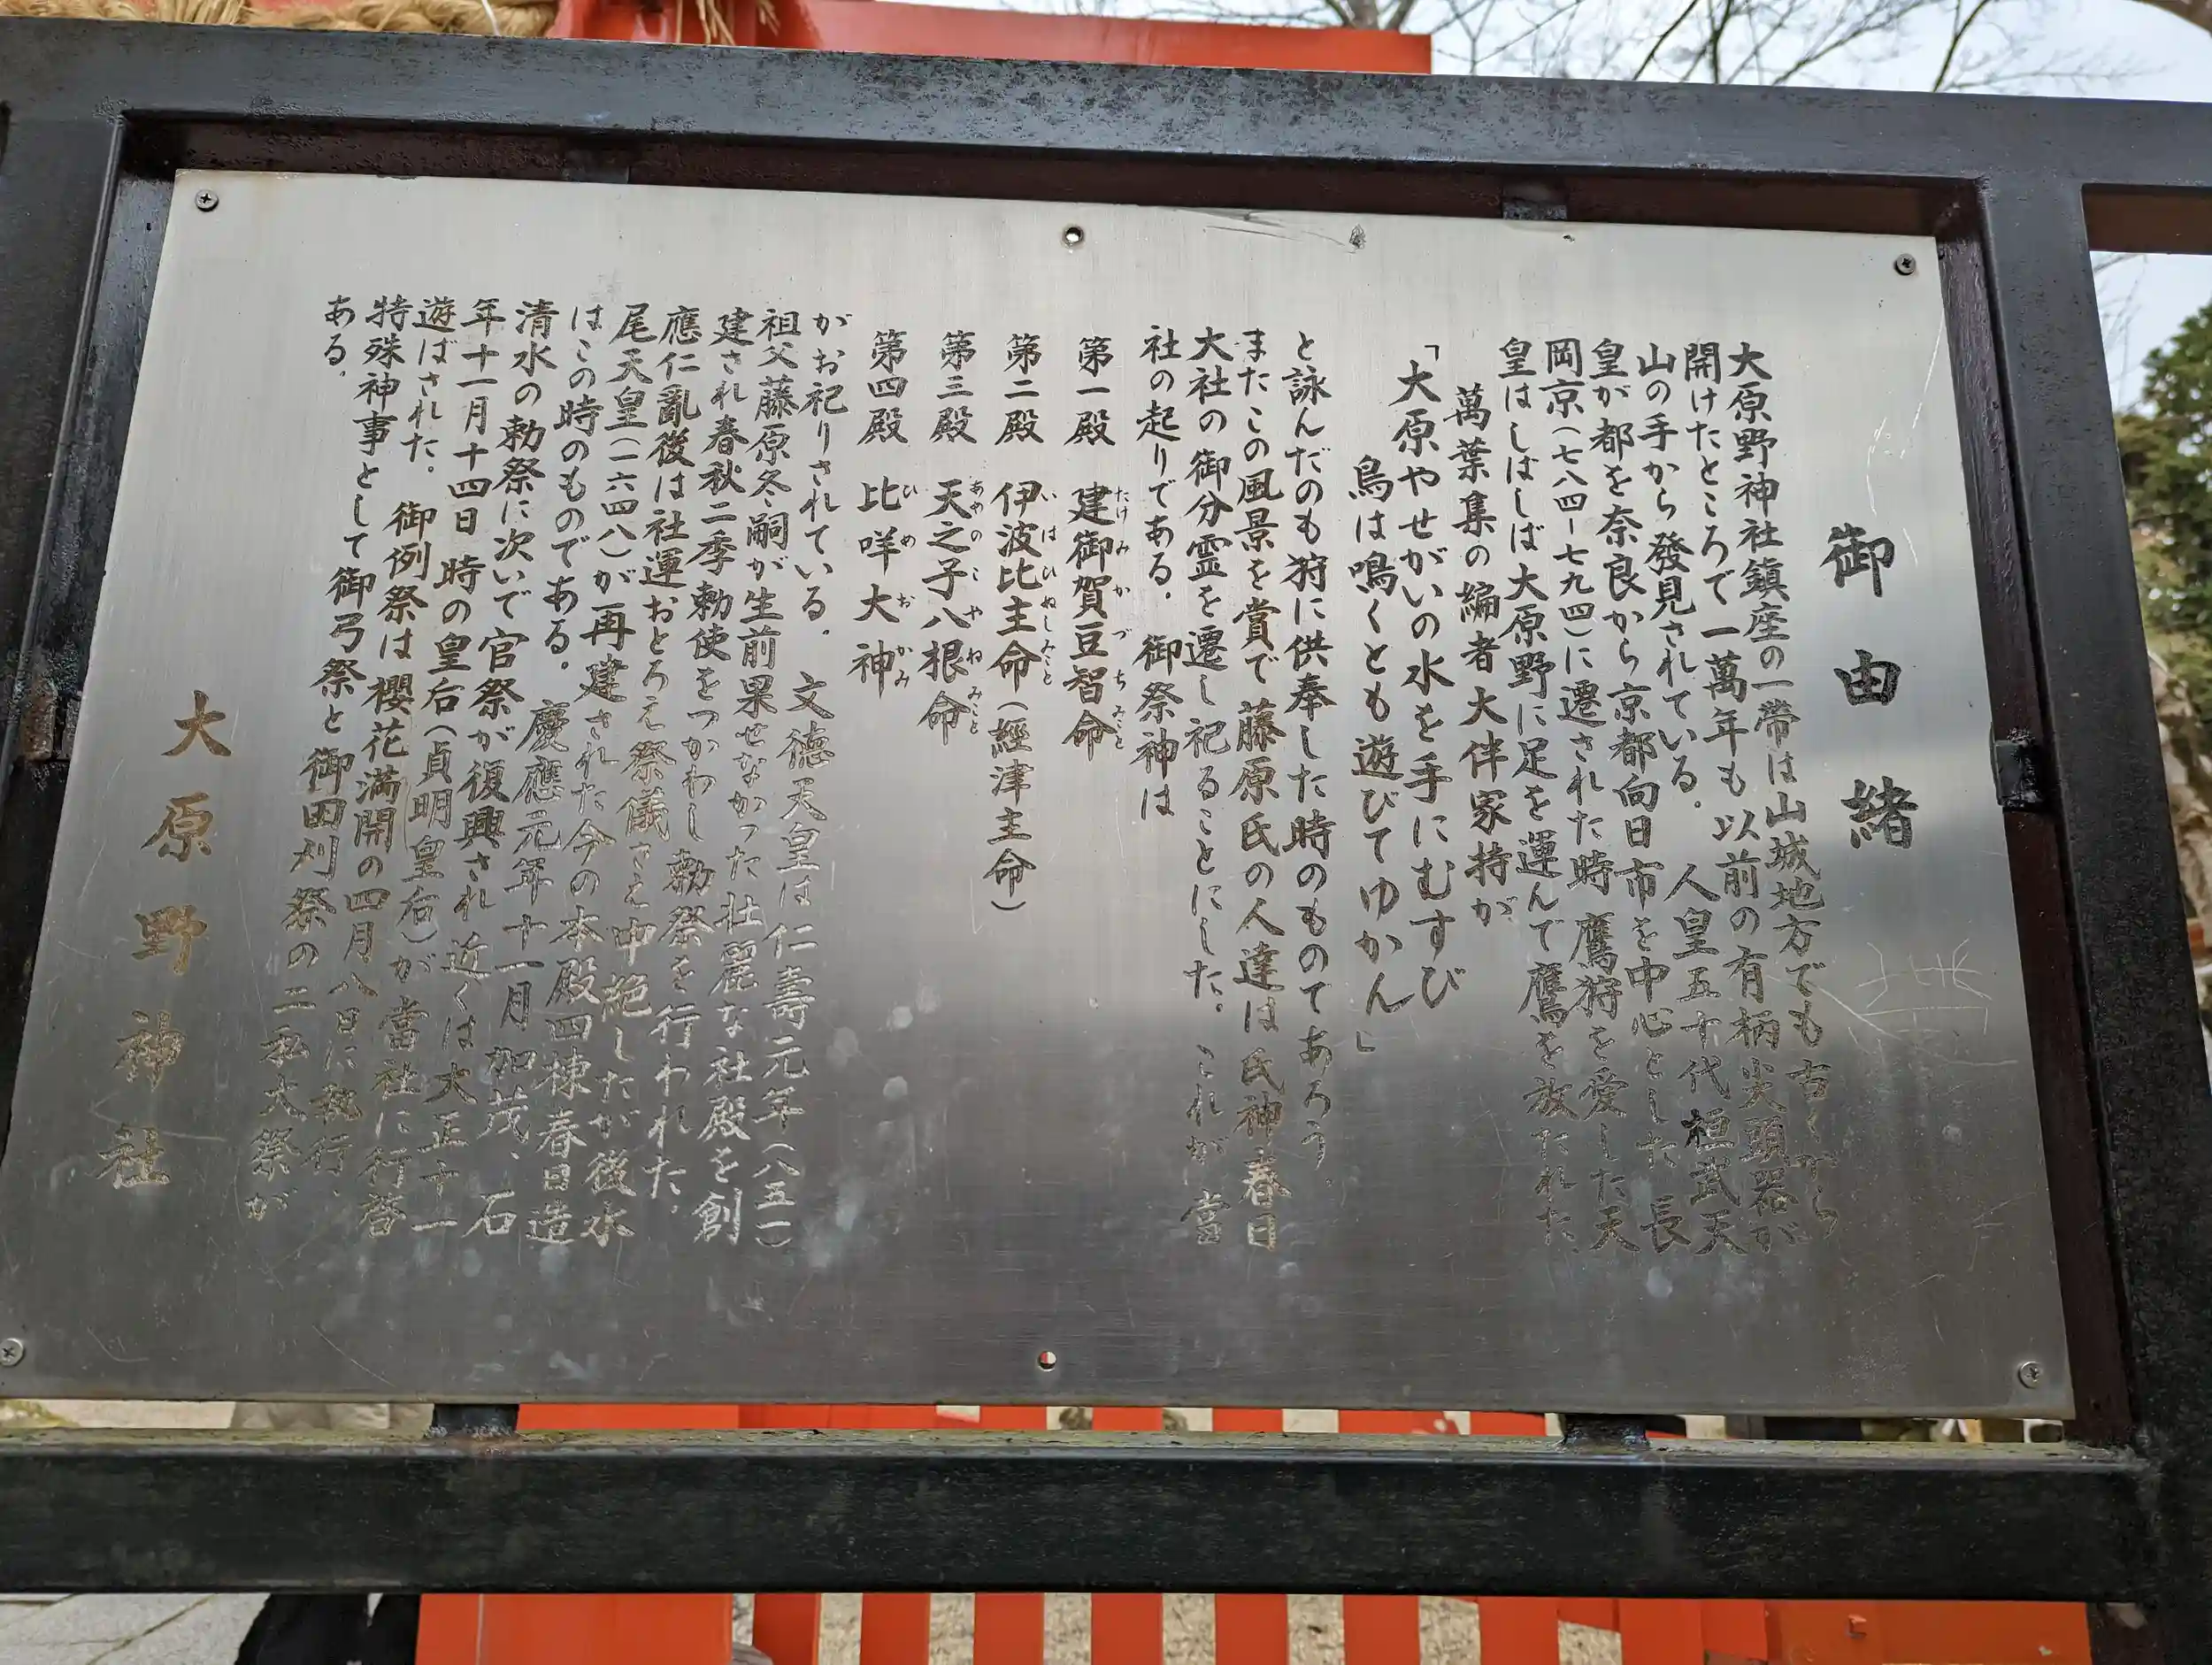 御由緒
大原野神社鎮座の一帶は山城地方でも古くから
開けたところで一萬年も以前の有柄尖頭器が
山の手から發見されている。人皇五十代桓武天
皇が都を奈良から京都向日市を中心とした長
岡京(七八四ー七九四)に遷された時鷹狩を愛した天
皇はしばしば大原野に足を運んで鷹を放たれた、
萬葉集の編者大伴家持が
「大原やせがいの水を手にむすび
鳥は鳴くとも遊びてゆかん」
と詠んだのも狩に供奉した時のものてあろう。
またこの風景を賞で藤原氏の人達は氏神春日
大社の御分霊を遷し祀ることにした。これが當
社の起りである。御祭神は
第一殿 建御賀豆智命
たけみかづちみこと
第二殿 伊波比主命(經津主命)
いはひぬしみこと
第三殿 天之子八根命
あめのこやねみこと
第四殿 比咩大神
ひめおかみ
がお祀りされている。文徳天皇は仁壽元年(八五一)
祖父藤原冬嗣が生前果せなかった壯麗な社殿を創
建され春秋二季勅使をつかわし勅祭を行われた。
應仁亂後は社運おとろえ祭儀さえ中絶したが後水
尾天皇(一六四八)が再建された今の本殿四棟春日造
はこの時のものである。慶應元年十一月加茂、石
清水の勅祭に次いで官祭が復興され近くは大正十一
年十一月十四日時の皇后(貞明皇后)が當社に行啓
遊ばされた。御例祭は櫻花満開の四月八日に執行、
特殊神事として御弓祭と御田刈祭の二私大祭が
ある。
大原野神社